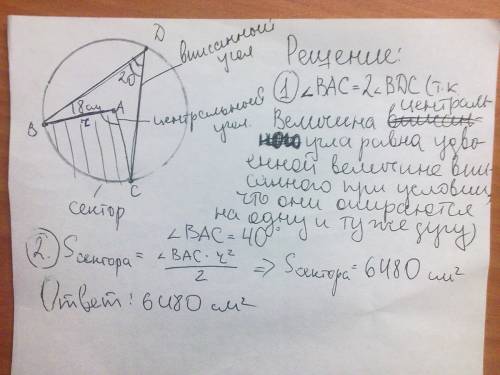 D
вписанный
угол
20°
18см A
r
B
центральный
угол.
C
сектор
Рещение:
① ∠BAC = 2∠BDC (т.к
централь
Величина вписан
ного угла равна удво-
енной величине впи-
санного при условии,
что они опираются
на одну и ту же дугу)
∠BAC = 40°
2. Sсектора = ∠BAC · r² / 2 => Sсектора = 6480 см²
Ответ: 6480 см²